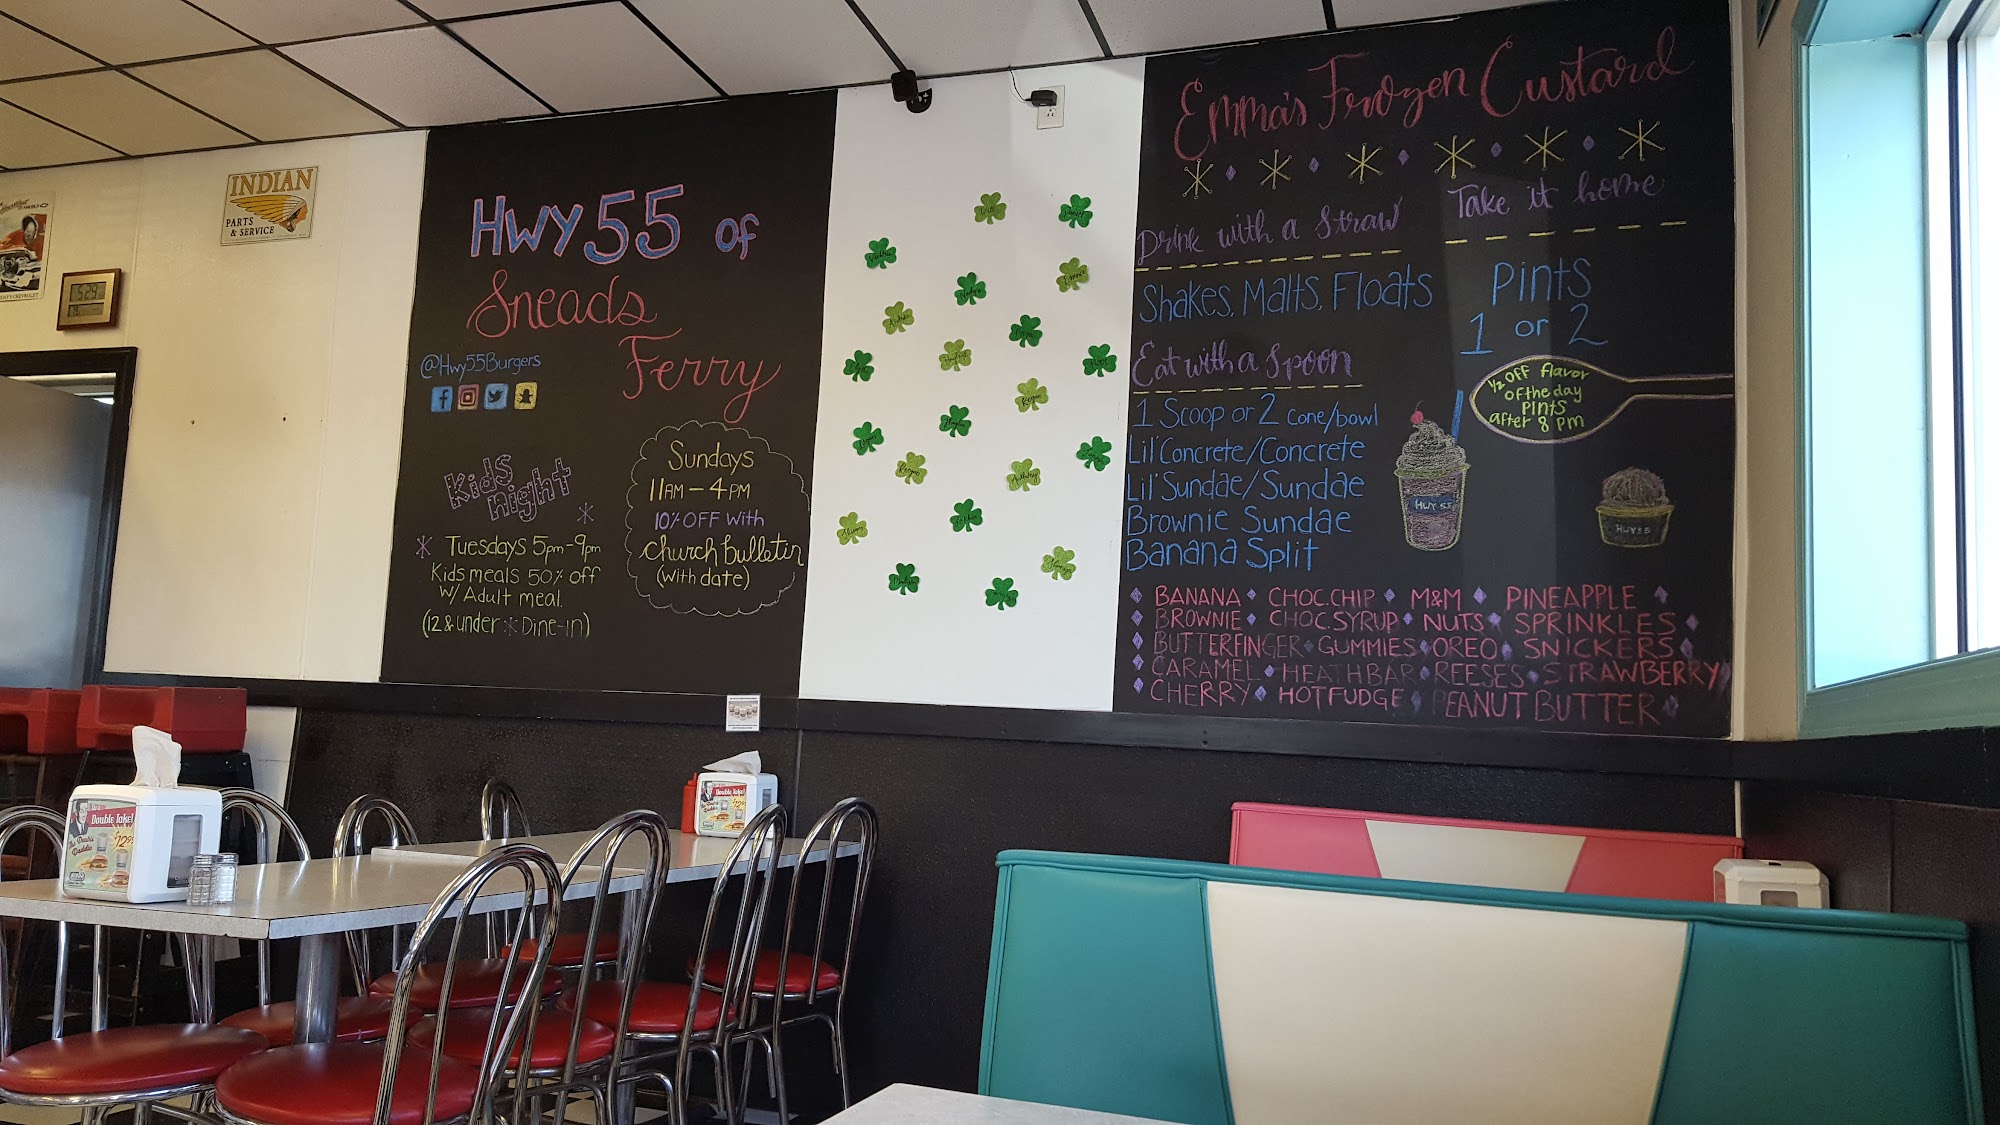 INDIAN
PARTS
& SERVICE
5:29
Hwy 55 of
Sneads
Ferry
@Hwy55Burgers
Kids
night
* Tuesdays 5pm-9pm
Kids meals 50% off
w/ Adult meal.
(12 & under * Dine-in)
Sundays
11AM - 4PM
10% OFF with
church bulletin
(with date)
Emma's Frozen Custard
Drink with a Straw
Shakes, Malts, Floats
Eat with a Spoon
1 Scoop or 2 cone/bowl
Lil' Concrete/Concrete
Lil' Sundae/Sundae
Brownie Sundae
Banana Split
Take it home
Pints
1 or 2
1/2 OFF flavor
of the day
Pints
after 8 pm
HWY 55
HWY 55
BANANA CHOC.CHIP M&M PINEAPPLE
BROWNIE CHOC SYRUP NUTS SPRINKLES
BUTTERFINGER GUMMIES OREO SNICKERS
CARAMEL HEATH BAR REESES STRAWBERRY
CHERRY HOT FUDGE PEANUT BUTTER
Double Take!
$12.99
Double Take!